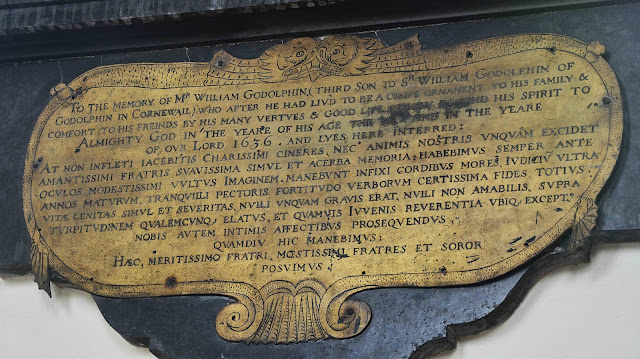 TO THE MEMORY OF Mr WILLIAM GODOLPHIN (THIRD SON TO Sr WILLIAM GODOLPHIN OF
GODOLPHIN IN CORNEWAIL) WHO AFTER HE HAD LIVD TO BE A ORNAMENT TO HIS FAMILY &
COMFORT (TO HIS FREINDS BY HIS MANY VERTVES & GOOD LIFE HIS SPIRIT TO
ALMIGHTY GOD IN THE YEARE OF HIS AGE THE IN THE YEARE
OF OVR LORD 1636. AND LYES HERE INTERRED:
AT NON INFLETI IACEBITIS CHARISSIMI CINERES, NEC ANIMIS NOSTRIS VNQVAM EXCIDET
AMANTISSIMI FRATRIS SVAVISSIMA SIMVL ET ACERBA MEMORIA; HABEBIMVS SEMPER ANTE
OCVLOS MODESTISSIMI VVLTVS IMAGINEM. MANEBVNT INFIXI CORDIBVS MORES, IVDICIV VLTRA
ANNOS MATVRVM, TRANQVILLI PECTORIS FORTITVDO VERBORVM CERTISSIMA FIDES, TOTIVS
VITÆ LENITAS SIMVL ET SEVERITAS, NVLLI VNQVAM GRAVIS ERAT, NVLLI NON AMABILIS, SVPRA
TVRPITVDINEM QVALEMCVNQ, ELATVS, ET QVAMVIS IVVENIS REVERENTIA VBIQ, EXCEPT,
NOBIS AVTEM INTIMIS AFFECTIBVS PROSEQVENDVS
QVAMDIV HIC MANEBIMVS;
HÆC, MERITISSIMO FRATRI, MŒSTISSIMI FRATRES ET SOROR
POSVIMVS,